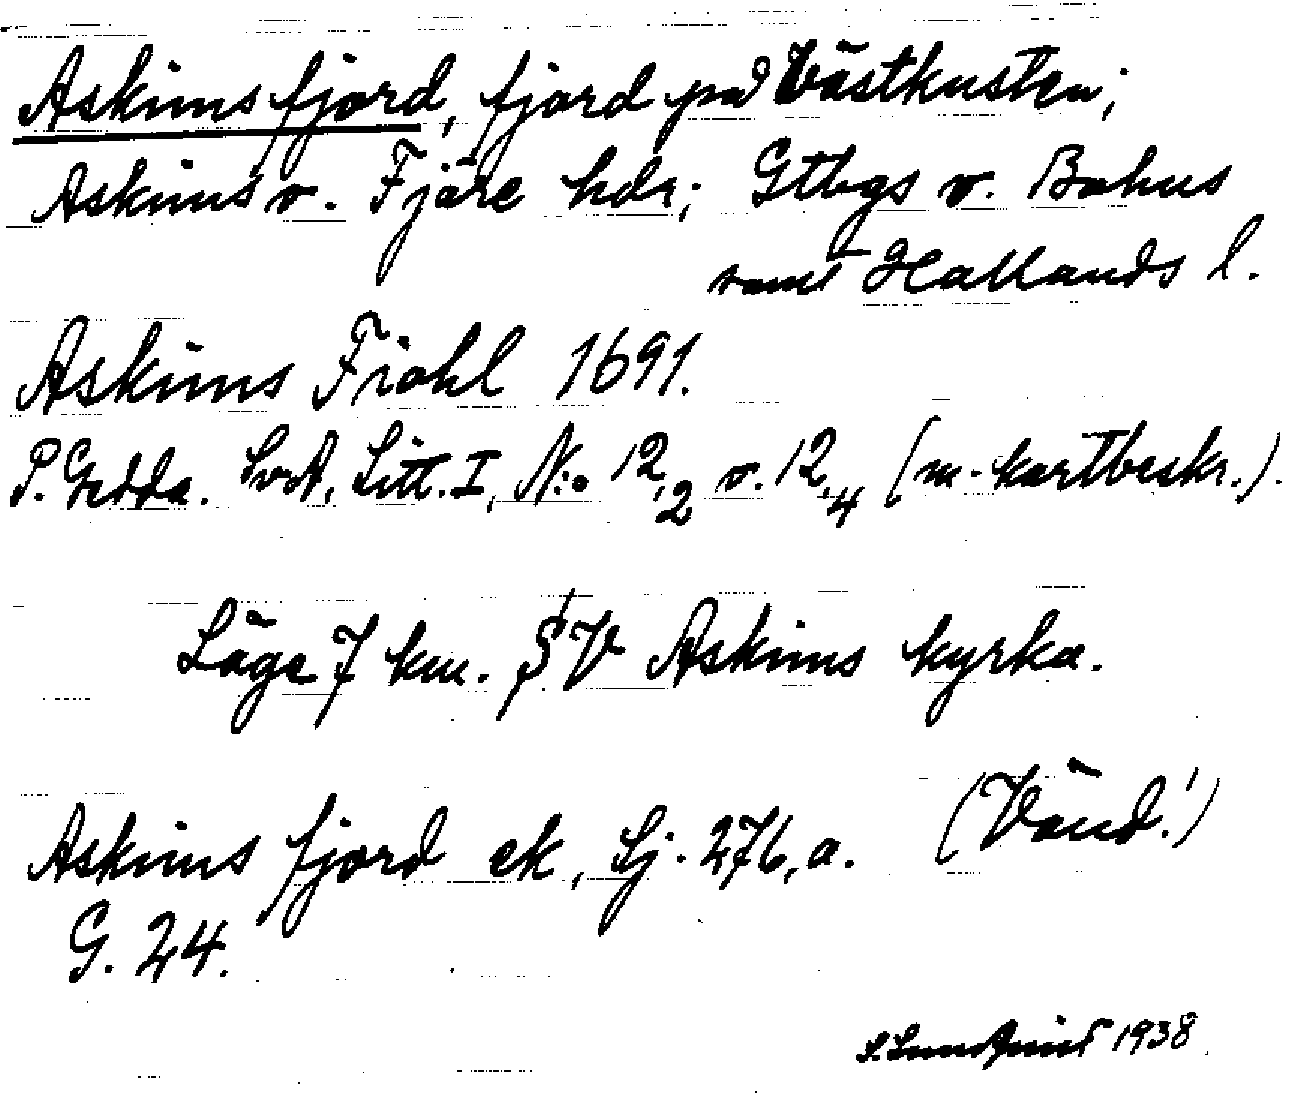 Askims fjord, fjord på Västkusten;
Askims o. Fjäre hdr; Gtbgs o. Bohus
samt Hallands l.
Askims Fiohl 1691.
P. Gedda. SvA, Litt. I, N:o 12,2 o. 12,4 (m. kartbeskr.).
Läge 7 km. SV Askims kyrka.
Askims fjord ek, Sj. 276, a. (Vänd!)
G. 24.
S. Lundquist 1938